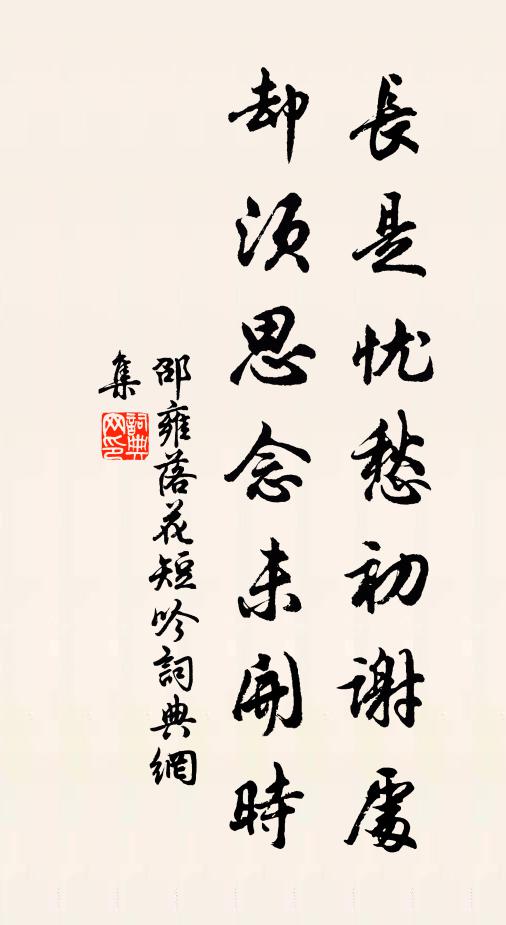 長是忧愁初謝處
却須思念未開時
邵雍落花短吟詞典網
集
詞典
网印